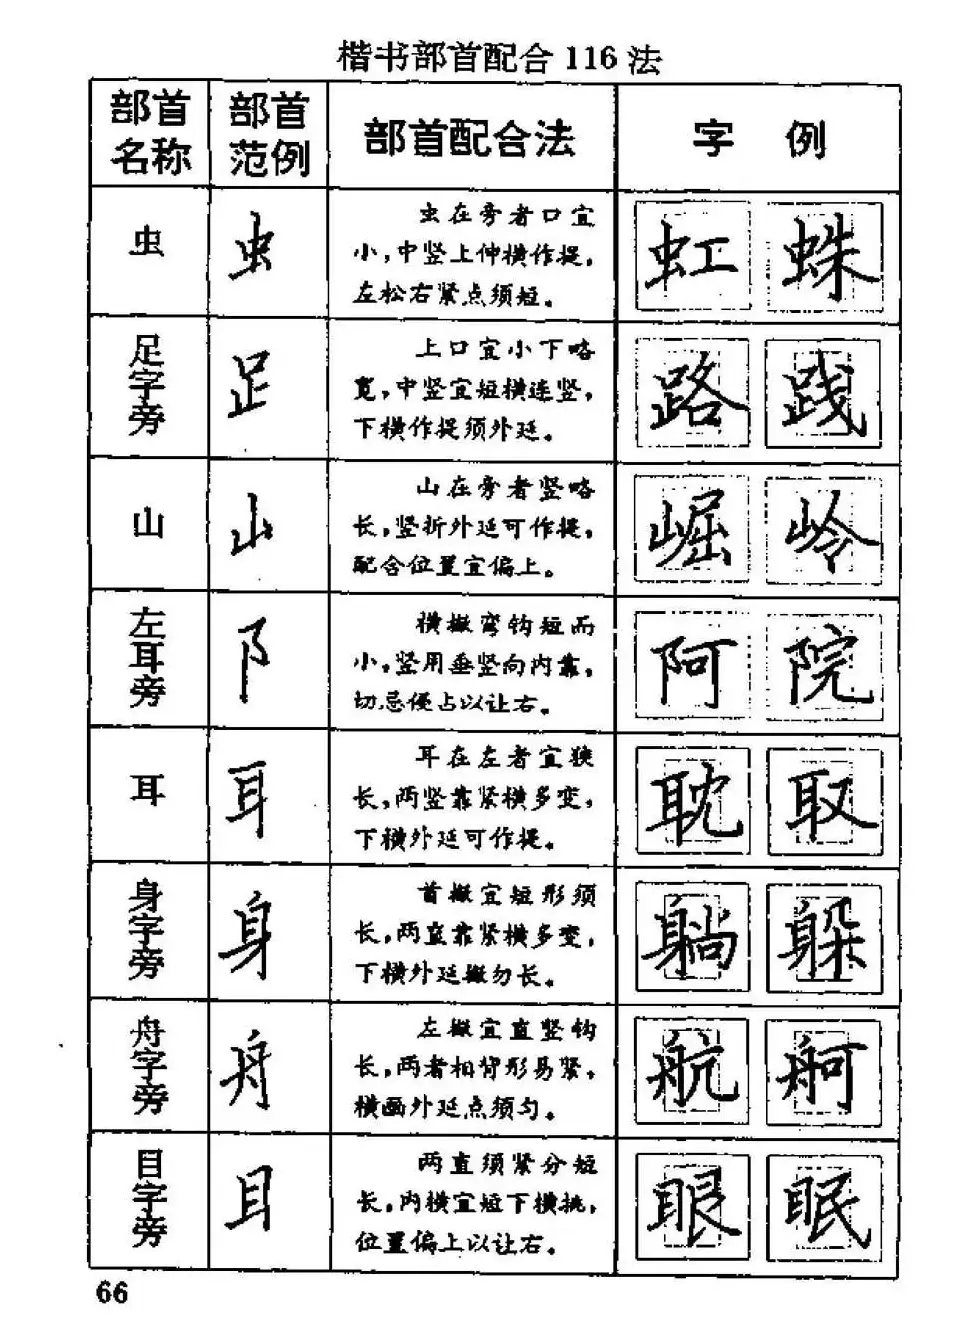 楷书部首配合116法
部首名称 部首范例 部首配合法 字例
虫 虫 虫在旁者口宜 虹 蛛
小,中竖上伸横作提,
左松右紧点须短。
足字旁 𧾷 上口宜小下略 路 践
宽,中竖宜短横连竖,
下横作提须外延。
山 山 山在旁者竖略 崛 岭
长,竖折外延可作提,
配合位置宜偏上。
左耳旁 阝 横撇弯钩短而 阿 院
小,竖用垂竖向内靠,
切忌侵占以让右。
耳 耳 耳在左者宜狭 耽 取
长,两竖靠紧横多变,
下横外延可作提。
身字旁 身 首撇宜短形须 躺 躲
长,两直靠紧横多变,
下横外延撇勿长。
舟字旁 舟 左撇宜直竖钩 航 舸
长,两者相背形易紧,
横画外延点须匀。
目字旁 目 两直须紧分短 眼 眠
长,内横宜短下横挑,
位置偏上以让右。
66